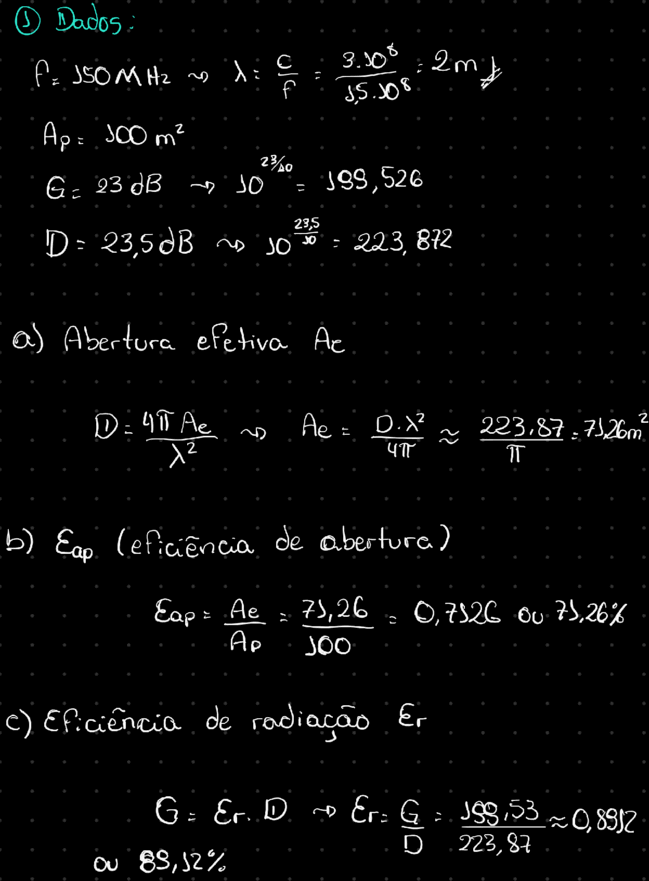 ① Dados:
f = 150 MHz ⤳ λ = c/f = 3.10⁸/1,5.10⁸ = 2m
Ap = 100 m²
G = 23 dB → 10^(23/10) = 199,526
D = 23,5 dB ⤳ 10^(23,5/10) = 223,872
a) Abertura efetiva Ae
D = 4π Ae/λ² ⤳ Ae = D.λ²/4π ≈ 223,87/π = 71,26 m²
b) Eap (eficiência de abertura)
Eap = Ae/Ap = 71,26/100 = 0,7126 ou 71,26%
c) Eficiência de radiação Er
G = Er. D → Er = G/D = 199,53/223,87 ≈ 0,8912
ou 89,12%